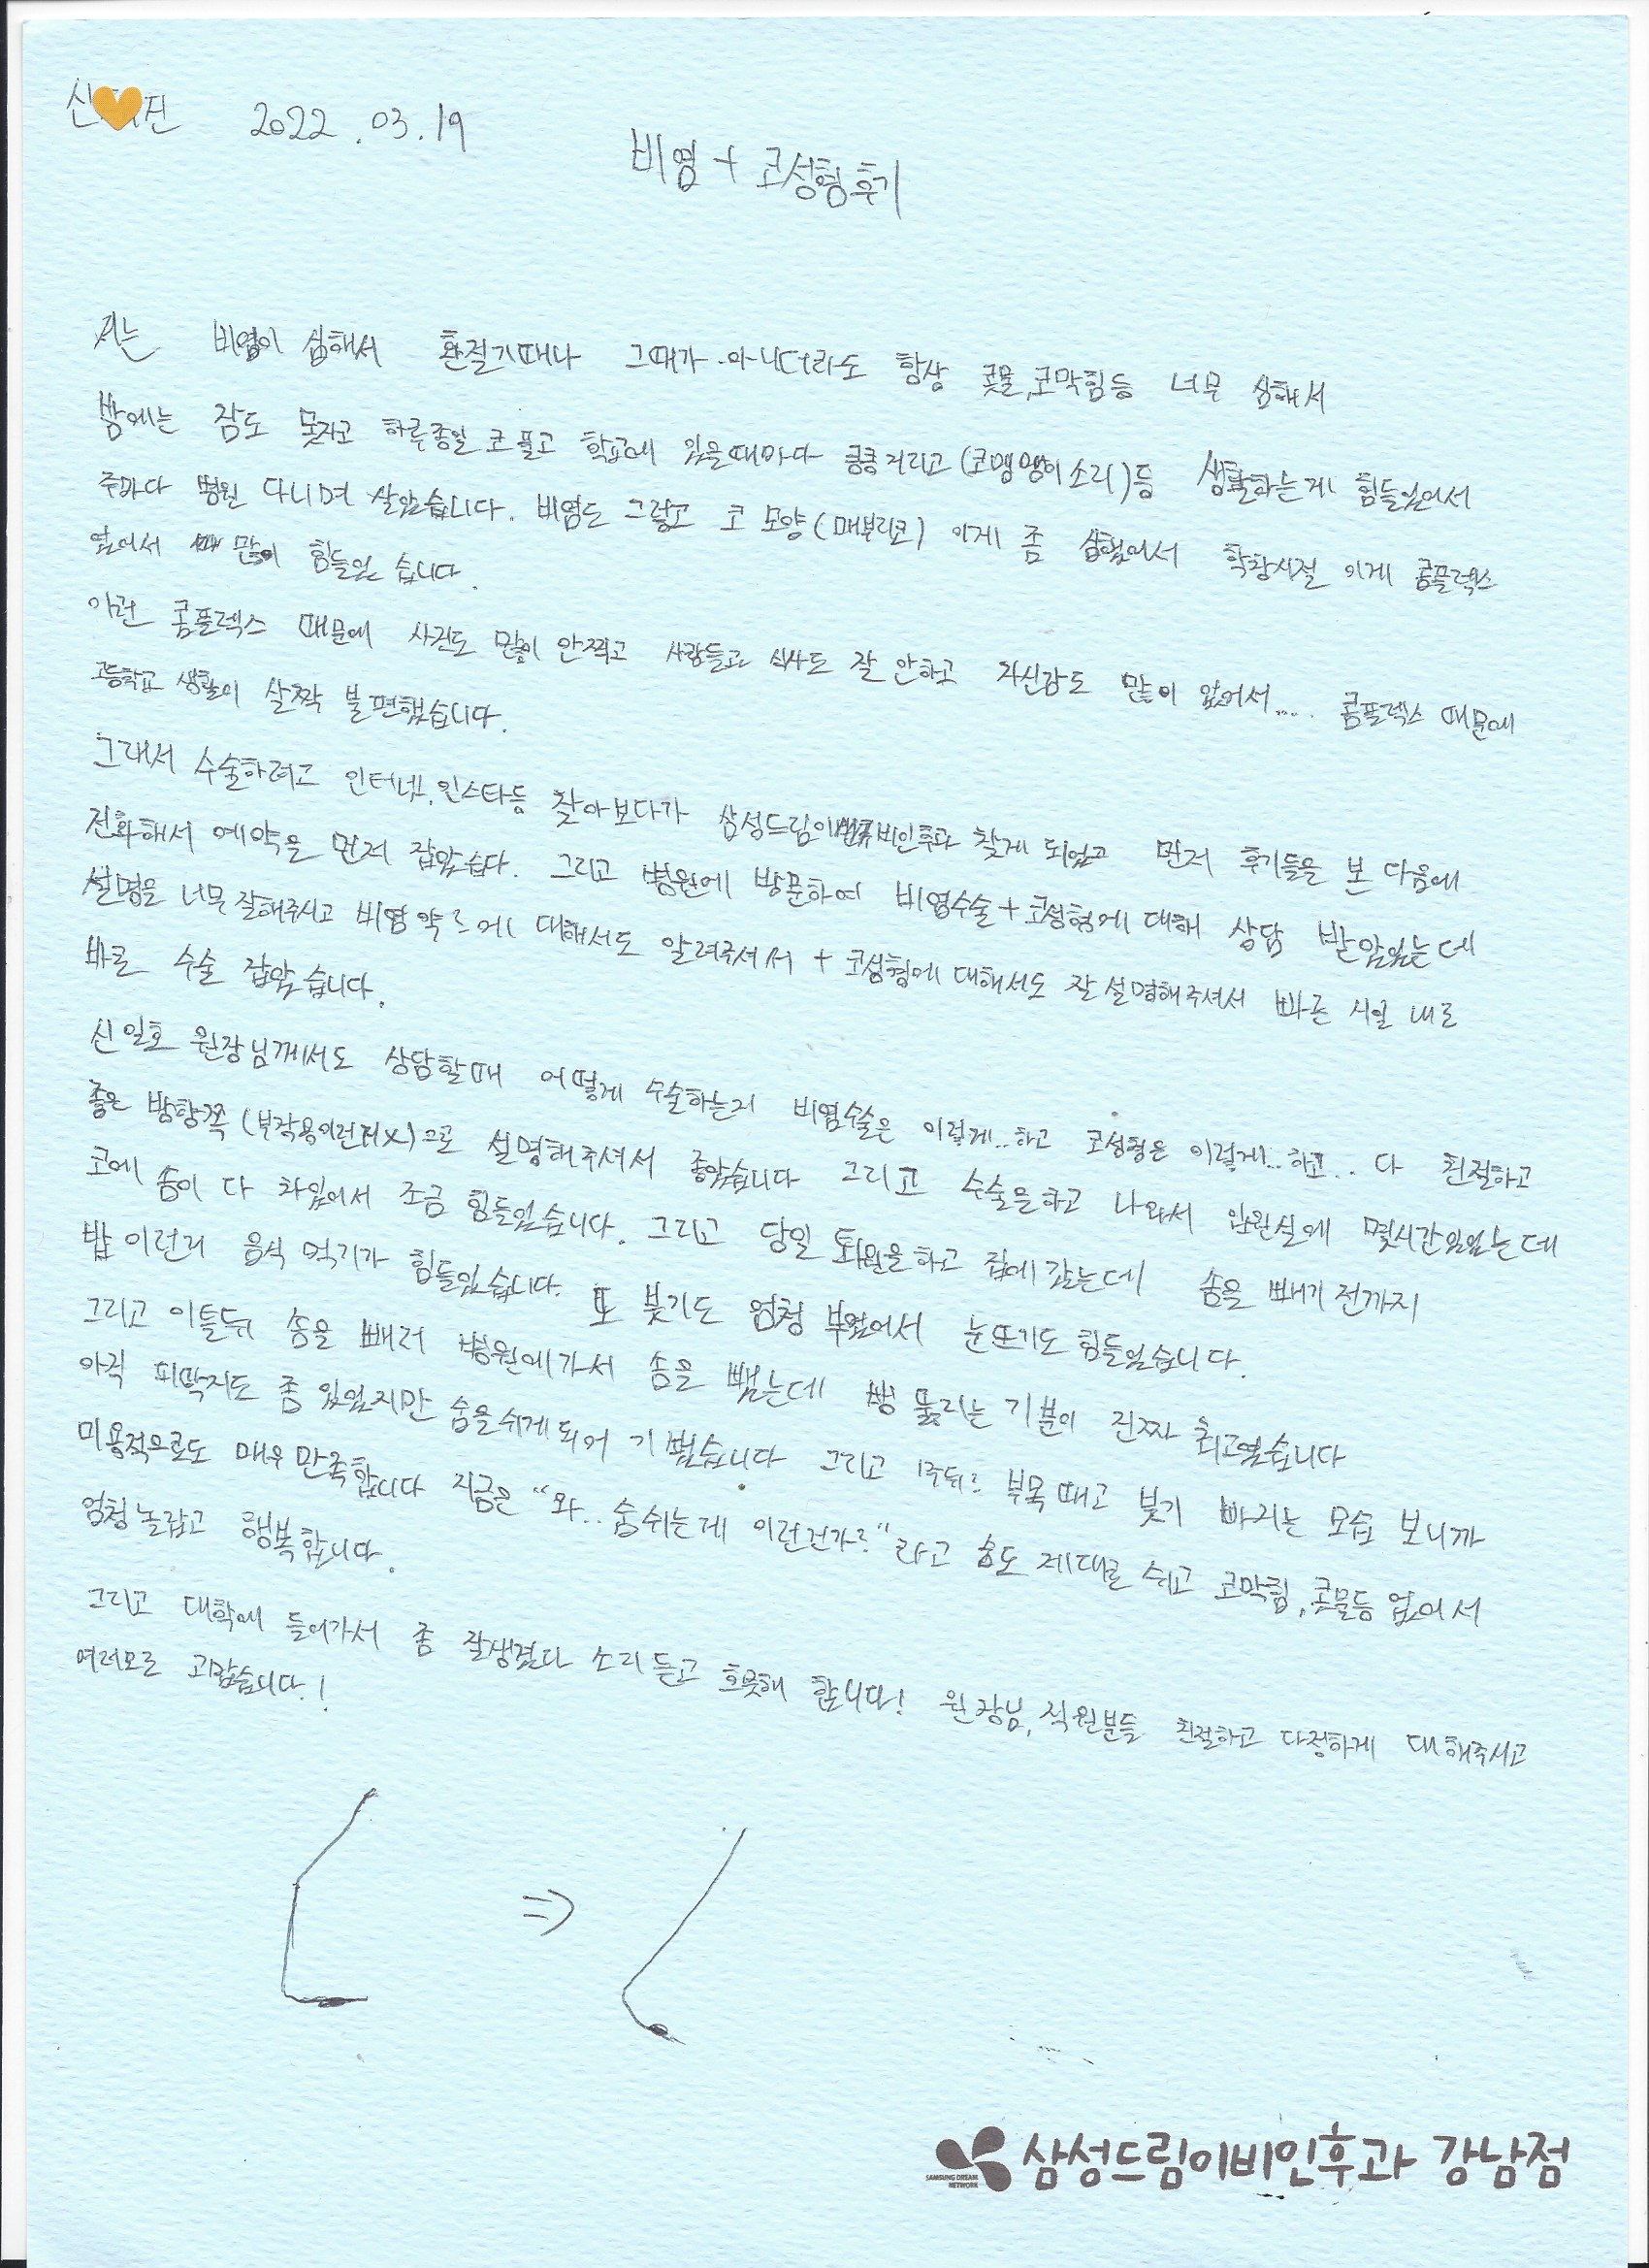 신 진 2022.03.19
비염 + 코성형후기
저는 비염이 심해서 환절기때나 그때가 아니더라도 항상 콧물,코막힘등 너무 심해서
밤에는 잠도 못자고 하루종일 코풀고 학교에 있을때마다 킁킁거리고(코맹맹이소리)등 생활하는게 힘들었어서
주마다 병원 다니며 살았습니다. 비염도 그렇고 코 모양(매부리코) 이게 좀 심했어서 학창시절 이게 콤플렉스
였어서 많이 힘들었습니다.
이런 콤플렉스 때문에 사진도 많이 안찍고 사람들과 식사도 잘 안하고 자신감도 많이 없어서.... 콤플렉스 때문에
고등학교 생활이 살짝 불편했습니다.
그래서 수술하려고 인터넷,인스타등 찾아보다가 삼성드림이비인후과 찾게 되었고 먼저 후기들을 본 다음에
전화해서 예약을 먼저 잡았습다. 그리고 병원에 방문하여 비염수술+코성형에 대해 상담 받았었는데
설명을 너무잘해주시고 비염약ㄹ에 대해서도 알려주셔서 + 코성형에 대해서도 잘설명해주셔서 빠른 시일 내로
바로 수술 잡았습니다.
신일호 원장님께서도 상담할때 어떻게 수술하는지 비염수술은 이렇게..하고 코성형은 이렇게..하고.. 다 친절하고
좋은 방향쪽(부작용이런거X)으로 설명해주셔서 좋았습니다 그리고 수술을하고 나와서 입원실에 몇시간있었는데
코에 솜이 다 차있어서 조금 힘들었습니다. 그리고 당일 퇴원을하고 집에갔는데 솜을 빼기전까지
밥 이런거 음식 먹기가 힘들었습니다. 또 붓기도 엄청 부었어서 눈뜨기도 힘들었습니다.
그리고 이틀뒤 솜을 빼러 병원에가서 솜을 뺐는데 뻥 뚫리는 기분이 진짜 최고였습니다
아직 피딱지도 좀 있었지만 숨을쉬게되어 기뻤습니다 그리고 1주뒤? 부목때고 붓기 빠지는 모습 보니까
미용적으로도 매우만족합니다 지금은 “와..숨쉬는게 이런건가?”라고 숨도 제대로 쉬고 코막힘,콧물등 없어서
엄청놀랍고 행복합니다.
그리고 대학에 들어가서 좀 잘생겼다 소리듣고 흐뭇해 합니다! 원장님,직원분들 친절하고 다정하게 대해주시고
여러모로 고맙습니다.!
삼성드림이비인후과 강남점
SAMSUNG DREAM
NETWORK